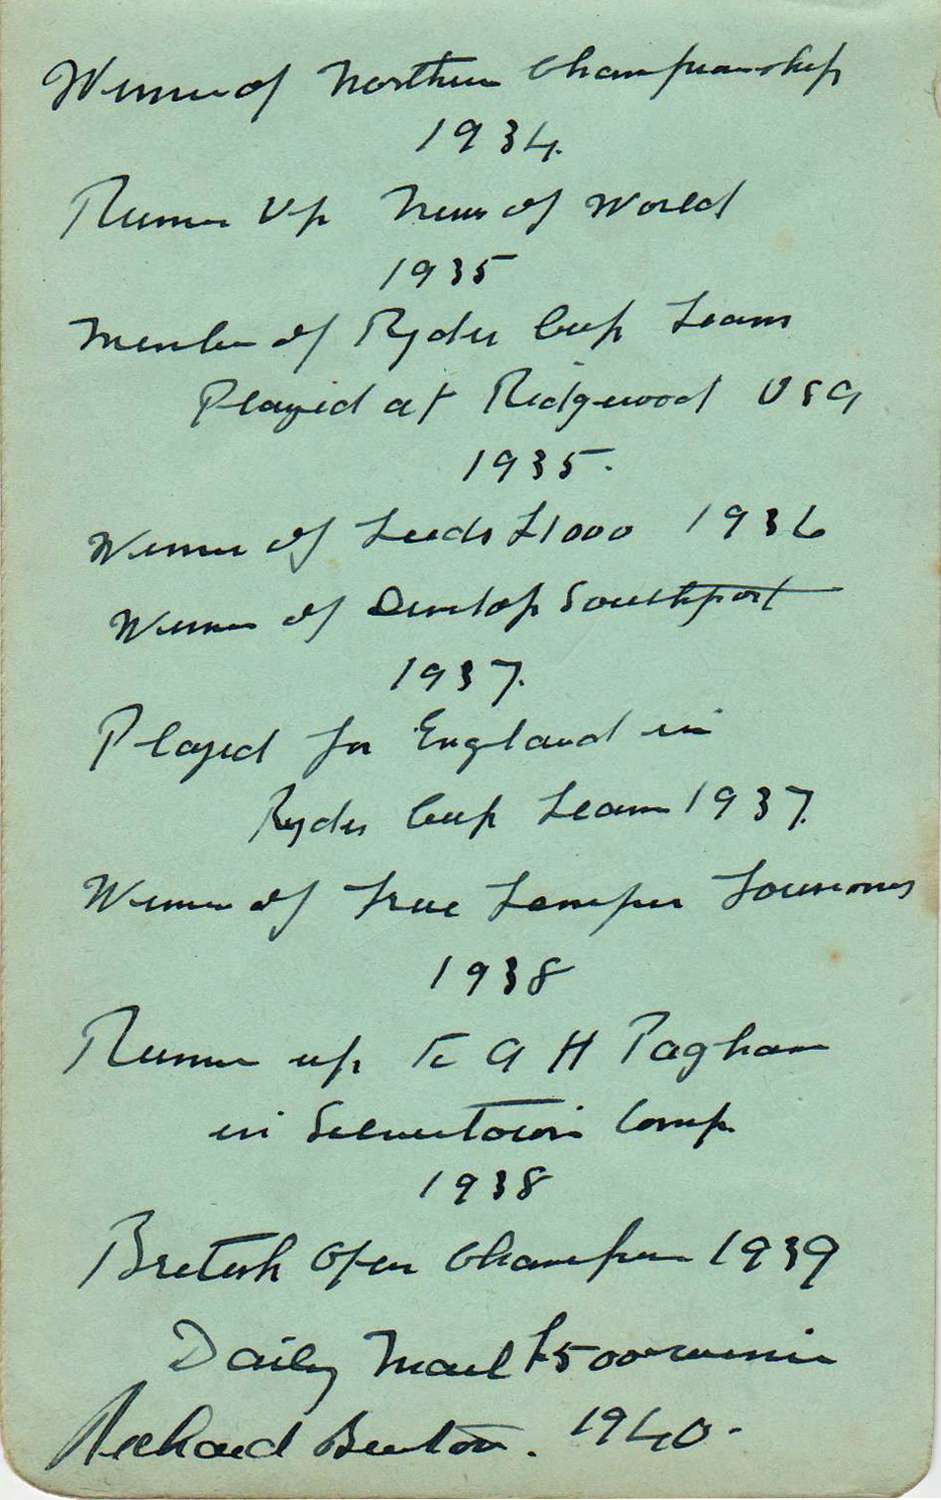 Winner of Northern Championship
1934.
Runner Up News of World
1935
Member of Ryder Cup Team
Played at Ridgewood USA
1935.
Winner of Leeds £1000 1936
Winner of Dunlop Southport
1937.
Played for England in
Ryder Cup Team 1937.
Winner of True Temper
1938
Runner up to A H Padgham
in Silvertown Comp
1938
British Open Champion 1939
Daily Mail £500 winner
Richard Burton. 1940.